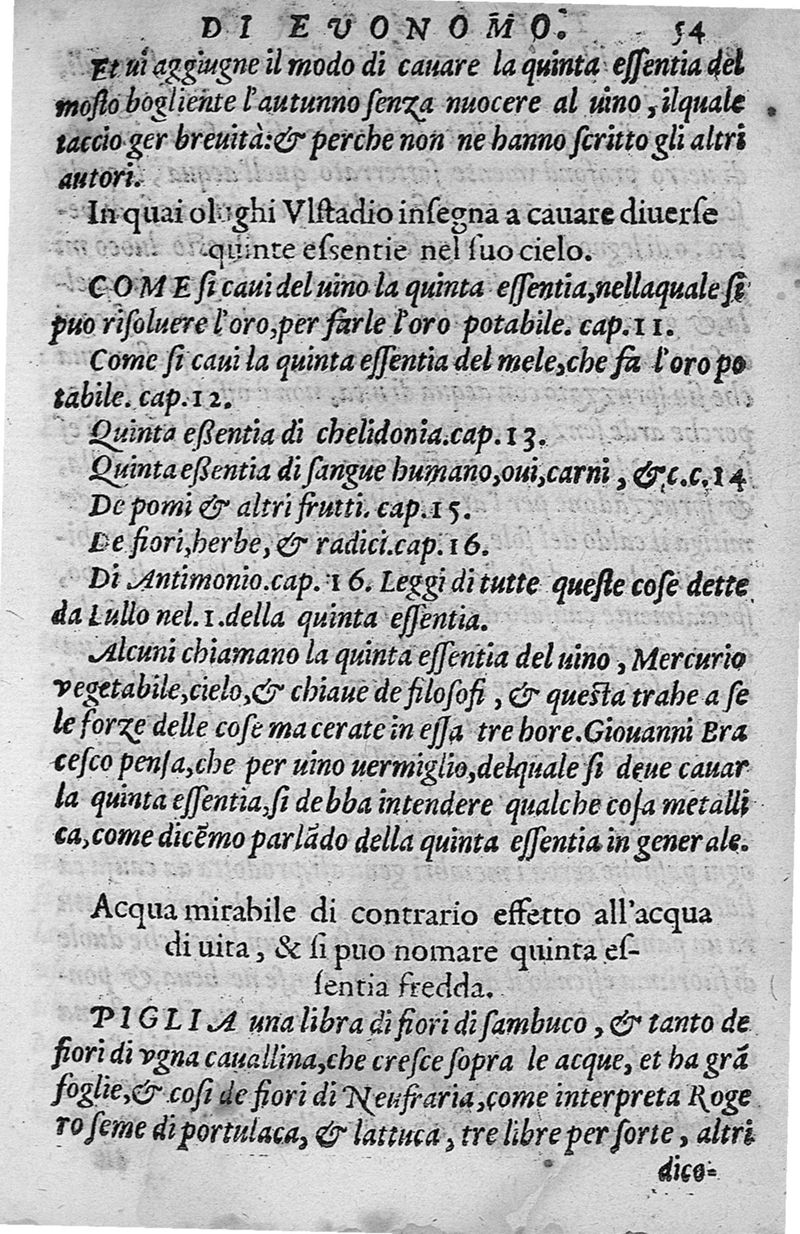 DI EVONOMO. 54
Et ui aggiugne il modo di cauare la quinta eſſentia del
moſto bogliente l'autunno ſenza nuocere al uino, ilquale
taccio ꝑer breuità: & perche non ne hanno ſcritto gli altri
autori.
In quai oluoghi Vlſtadio inſegna a cauare diuerſe
quinte eſsentie nel ſuo cielo.
COME ſi caui del uino la quinta eſſentia, nellaquale ſi
puo riſoluere l'oro, per farle l'oro potabile. cap. 11.
Come ſi caui la quinta eſſentia del mele, che fa l'oro po
tabile. cap. 12.
Quinta eßentia di chelidonia. cap. 13.
Quinta eßentia di ſangue humano, oui, carni, &c. c. 14
De pomi & altri frutti. cap. 15.
De fiori, herbe, & radici. cap. 16.
Di Antimonio. cap. 16. Leggi di tutte queſte coſe dette
da Lullo nel. 1. della quinta eſſentia.
Alcuni chiamano la quinta eſſentia del uino, Mercurio
vegetabile, cielo, & chiaue de filoſofi, & queſta trahe a ſe
le forze delle coſe macerate in eſſa tre hore. Giouanni Bra
ceſco penſa, che per uino uermiglio, delquale ſi deue cauar
la quinta eſſentia, ſi debba intendere qualche coſa metalli
ca, come dicẽmo parlãdo della quinta eſſentia in generale.
Acqua mirabile di contrario effetto all'acqua
di uita, & ſi puo nomare quinta eſ-
ſentia fredda.
PIGLIA una libra di fiori di ſambuco, & tanto de
fiori di vgna cauallina, che creſce ſopra le acque, et ha grã
foglie, & coſi de fiori di Neufraria, come interpreta Roge
ro ſeme di portulaca, & lattuca, tre libre per ſorte, altri
dico-